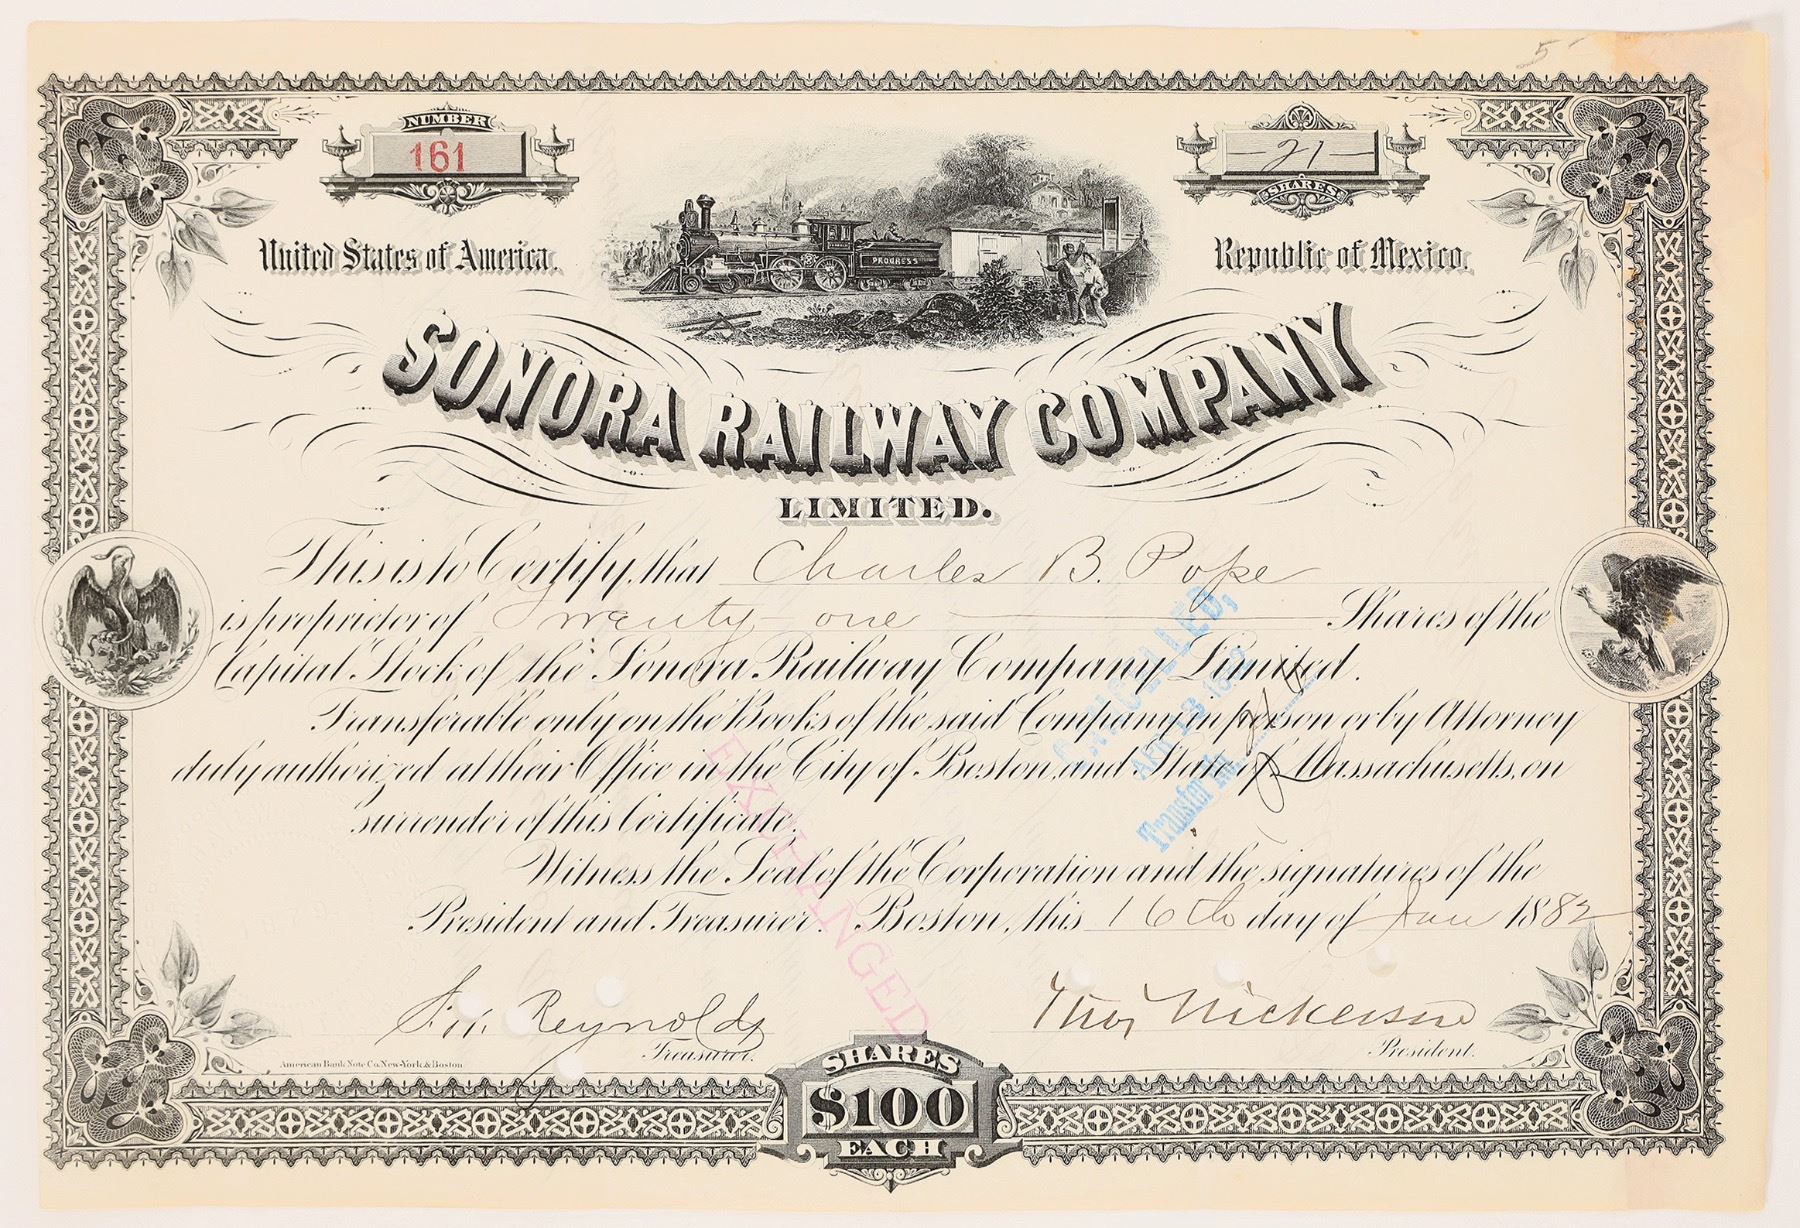 5
NUMBER
161
21
SHARES
PROGRESS
United States of America.
Republic of Mexico.
SONORA RAILWAY COMPANY
LIMITED.
This is to Certify, that Charles B. Pope
is proprietor of Twenty-one Shares of the
Capital Stock of the Sonora Railway Company Limited.
Transferable only on the Books of the said Company in person or by Attorney
duly authorized at their Office in the City of Boston and State of Massachusetts, on
surrender of this Certificate.
CANCELLED,
1882
Transfer No.
EXCHANGED
Witness the Seal of the Corporation and the signatures of the
President and Treasurer. Boston, this 16th day of Jan 1882
Reynolds
Treasurer.
Thos Nickerson
President.
American Bank Note Co. New-York & Boston
SHARES
$100
EACH